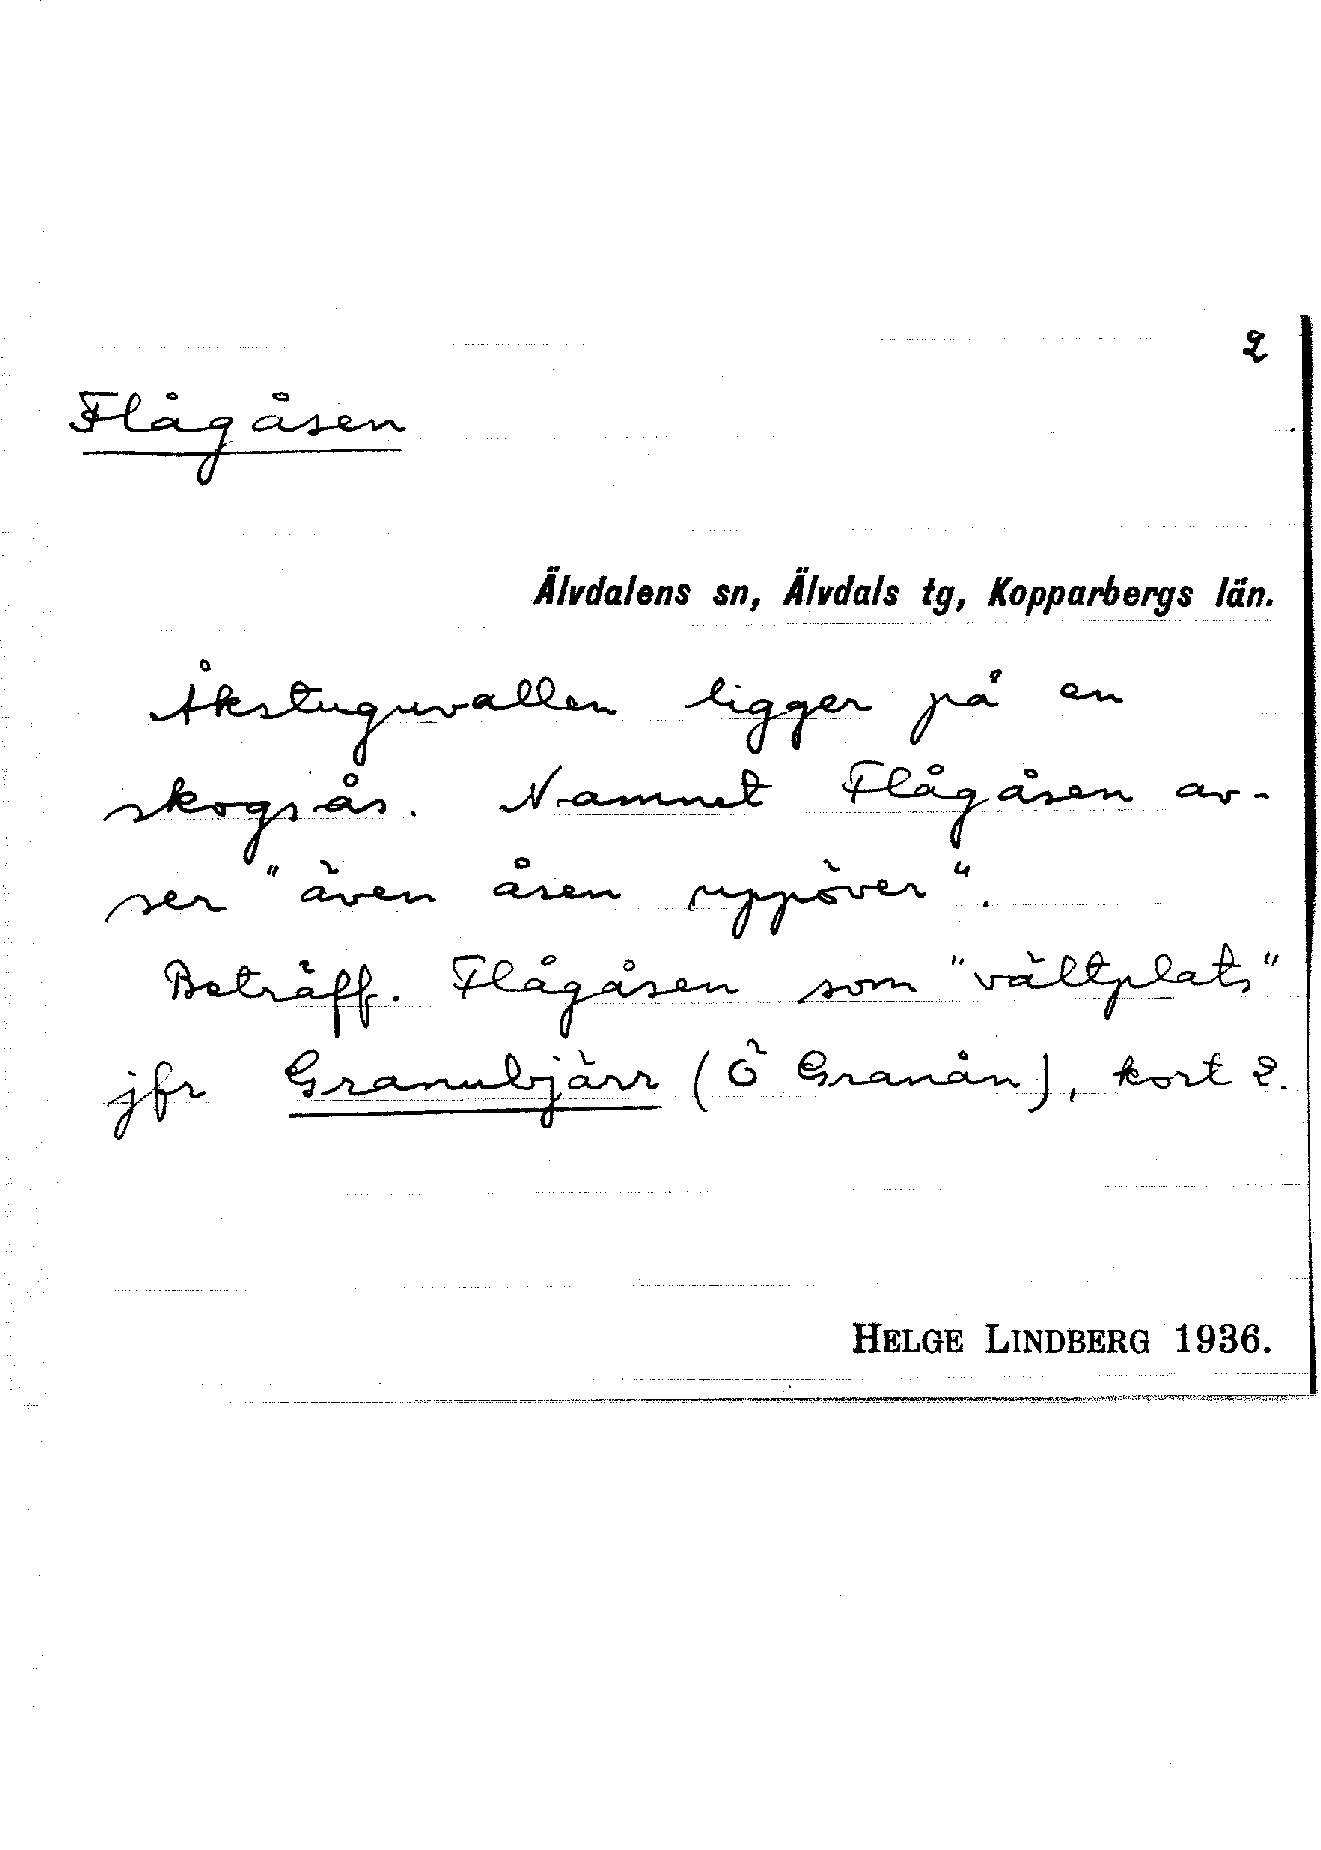 2
Flågåsen
Älvdalens sn, Älvdals tg, Kopparbergs län.
Åkstuguvallen ligger på en
skogsås. Namnet Flågåsen av-
ser "även åsen uppöver".
Beträff. Flågåsen som "vältplats"
jfr Granubjärr (Ö Granån), kort 2.
HELGE LINDBERG 1936.